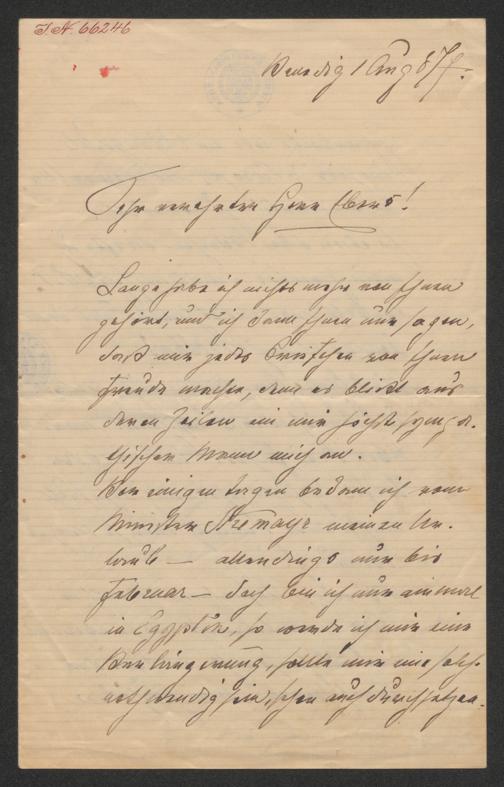 I.N. 66246
Venedig 1 Aug 877.
Sehr verehrter Herr Ebers!
Lange habe ich nichts mehr von Ihnen
gehört, und ich kann Ihnen nur sagen,
daß mir jedes Briefchen von Ihnen
Freude macht, denn es blickt aus
deren Zeilen ein mir höchst sympa-
thischer Mann mich an.
Vor einigen Tagen bekam ich vom
Minister Stremayr meinen Ur-
laub – allerdings nur bis
Februar – doch bin ich nur einmal
in Egypten, so werde ich mir eine
Verlängerung, sollte mir eine solche
nothwendig sein, schon auch durchsetzen.